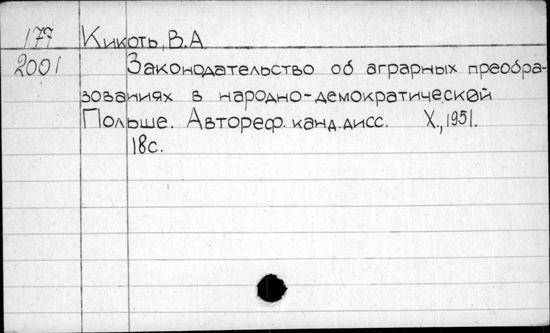 177 Кикоть, В.А.
2001 Законодательство об аграрных преобра-
зованиях в народно-демократической
Польше. Автореф. канд. дисс. Х., 1951.
18с.